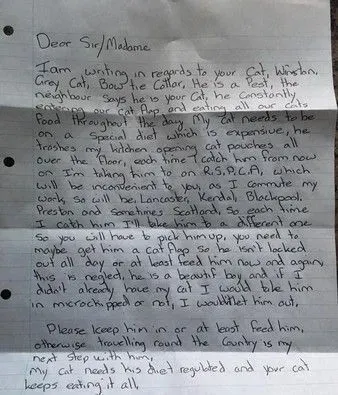 Dear Sir/Madame
I am writing in regards to your Cat, Winston,
Grey Cat, Bow tie Collar, He is a Pest, the
neighbour Says he is your Cat, he Constantly
entering our Cat flap and eating all our Cats
food throughout the day, My Cat needs to be
on a Special diet which is expensive, he
trashes my kitchen opening cat pouches all
over the floor, each time I catch him from now
on I'm taking him to an R.S.P.C.A, which
will be inconvenient to you, as I commute my
work, so will be, Lancaster, Kendal, Blackpool,
Preston and Sometimes Scotland, So each time
I catch him I'll take him to a different one
so you will have to pick him up, you need to
maybe get him a Cat flap so he isn't locked
out all day or at least feed him now and again,
this is neglect, he is a beautiful boy and if I
didn't already have my cat I would take him
in microchipped or not, I wouldn't let him out,
Please keep him in or at least feed him,
otherwise travelling round the Country is my
next step with him,
My cat needs his diet regulated and your cat
keeps eating it all,